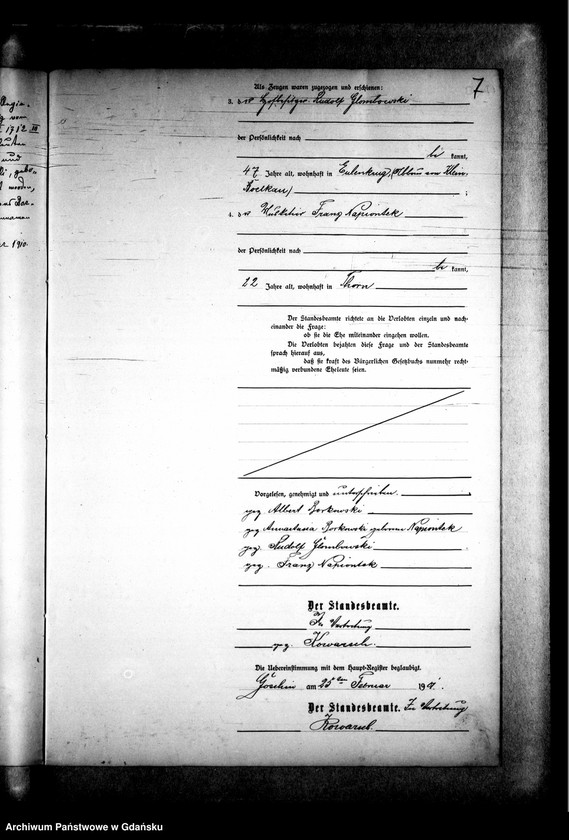 7
Als Zeugen waren zugezogen und erschienen:
3. der Hofbesitzer Rudolf Glombowski
der Persönlichkeit nach
bekannt,
47 Jahre alt, wohnhaft in Eulenkrug, (Abbau von Klein
Boelkau) ;
4. der Musketier Franz Napiontek
der Persönlichkeit nach
bekannt,
22 Jahre alt, wohnhaft in Thorn
Der Standesbeamte richtete an die Verlobten einzeln und nach-
einander die Frage:
ob sie die Ehe miteinander eingehen wollen.
Die Verlobten bejahten diese Frage und der Standesbeamte
sprach hierauf aus,
daß sie kraft des Bürgerlichen Gesetzbuchs nunmehr recht-
mäßig verbundene Eheleute seien.
Vorgelesen, genehmigt und unterschrieben.
gez. Albert Borkowski
gez. Borkowski geborene Napiontek
gez. Rudolf Glombowski
gez. Franz Napiontek
Der Standesbeamte.
In Vertretung
gez. Kowarsch.
Die Uebereinstimmung mit dem Haupt-Register beglaubigt.
am 25ten Februar 191
Der Standesbeamte. In Vertretung
Kowarsch.
Archiwum Państwowe w Gdańsku